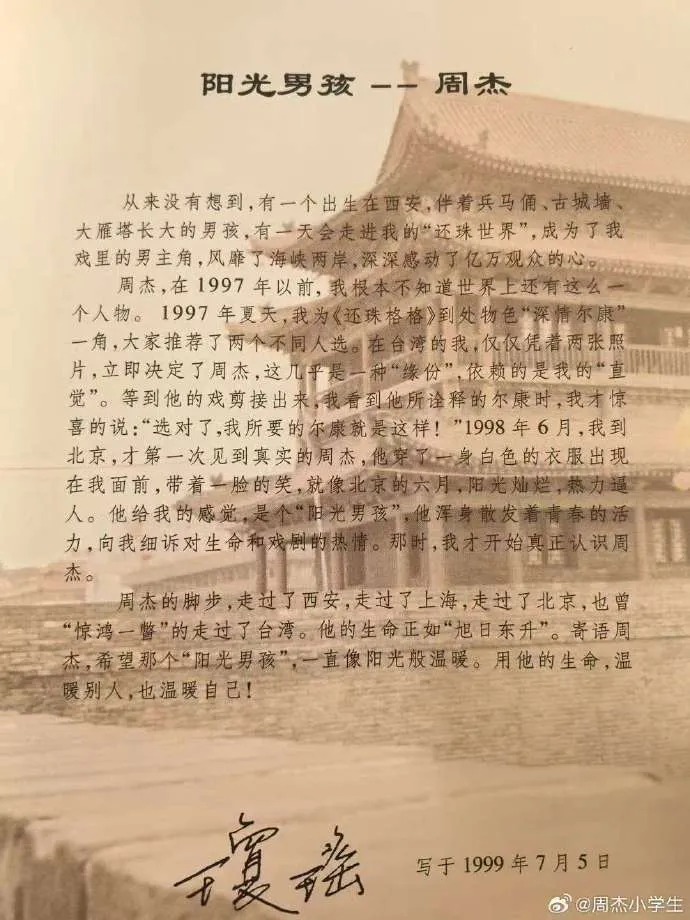 阳光男孩 -- 周杰
从来没有想到，有一个出生在西安，伴着兵马俑、古城墙、
大雁塔长大的男孩，有一天会走进我的“还珠世界”，成为了我
戏里的男主角，风靡了海峡两岸，深深感动了亿万观众的心。
周杰，在 1997 年以前，我根本不知道世界上还有这么一
个人物。 1997 年夏天，我为《还珠格格》到处物色“深情尔康”
一角，大家推荐了两个不同人选。在台湾的我，仅仅凭着两张照
片，立即决定了周杰，这几乎是一种“缘份”，依赖的是我的“直
觉”。等到他的戏剪接出来，我看到他所诠释的尔康时，我才惊
喜的说：“选对了，我所要的尔康就是这样！”1998 年 6 月，我到
北京，才第一次见到真实的周杰，他穿了一身白色的衣服出现
在我面前，带着一脸的笑，就像北京的六月，阳光灿烂，热力逼
人。他给我的感觉，是个“阳光男孩”，他浑身散发着青春的活
力，向我细诉对生命和戏剧的热情。那时，我才开始真正认识周
杰。
周杰的脚步，走过了西安，走过了上海，走过了北京，也曾
“惊鸿一瞥”的走过了台湾。他的生命正如“旭日东升”。寄语周
杰，希望那个“阳光男孩”，一直像阳光般温暖。用他的生命，温
暖别人，也温暖自己！
瓊瑤
写于 1999 年 7 月 5 日
@周杰小学生